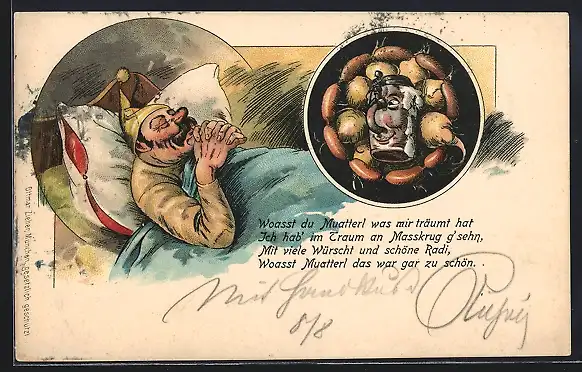 Woasst du Muatterl was mir träumt hat
Ich hab' im Traum an Masskrug g'sehn,
Mit viele Würscht und schöne Radi,
Woasst Muatterl das war gar zu schön.
Mit Handkuss
8/8
Ottmar Zieher, München, gesetzlich geschützt